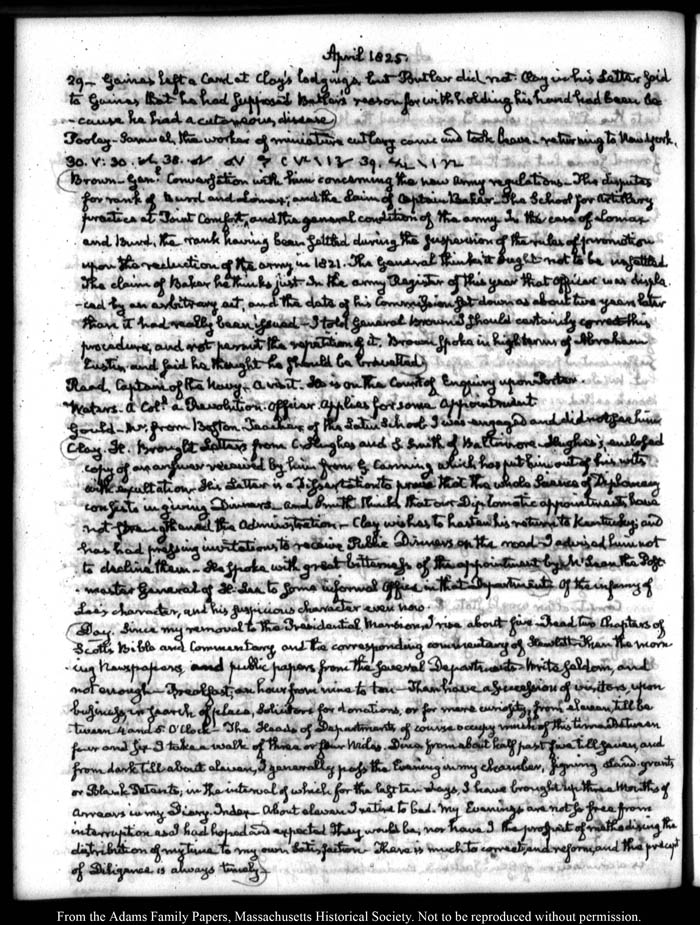 April 1825.
29— Gaines left a Card at Clay's lodgings, but Butler did not. Clay in his Letter said
to Gaines that he had supposed Butler's reason for withholding his hand had been be-
cause he had a cutaneous disease)
Pooley— Samuel, the worker of miniature cutlery came and took leave— returning to New York.
30. V: 30.
(Brown— Genl. Conversation with him concerning the new Army regulations— The disputes
for rank of Burd and Lomax; and the claim of Captain Baker— The School for Artillery
practice at Point Comfort, and the general condition of the army. In the case of Lomax
and Burd, the rank having been settled during the suspension of the rules of promotion
upon the reduction of the army in 1821. The General thinks it ought not to be unsettled
The claim of Baker he thinks just— In the army Register of this year that Officer was displa-
-ced by an arbitrary act, and the date of his Commission set down as about two years later
than it had really been issued— I told General Brown I should certainly correct this
procedure, and not permit the repetition of it. Brown spoke in high terms of Abraham
Eustis, and said he thought he should be brevetted)
Read, Captain of the Navy. A visit. He is on the Court of Enquiry upon Porter.
Waters. A Coll. a Revolution. Officer. Applies for some Appointment
Gould— Mr. from Boston. Teacher of the Latin School. I was engaged and did not see him
(Clay. H. Brought Letters from C. Hughes and S. Smith of Baltimore. Hughes's; enclosed
copy of an answer received by him from G Canning which has put him out of his wits
with exultation. His Letter is a Dissertation to prove that the whole Science of Diplomacy
consists in giving Dinners— and Smith thinks that our Diplomatic appointments have
not strengthened the Administration— Clay wishes to hasten his return to Kentucky; and
has had pressing invitations to receive Public Dinners on the road— I advised him not
to decline them— He spoke with great bitterness of the appointment by McLean the Post-
-master General of H. Lee to some informal Office in that Department. Of the infamy of
Lee's character, and his suspicious character even now.
(Day. Since my removal to the Presidential Mansion, I rise about five— Read two Chapters of
Scott's Bible and Commentary, and the corresponding commentary of Hewlett— Then the morn-
-ing Newspapers, and public papers from the several Departments— Write seldom, and
not enough— Breakfast, an hour from nine to ten— Then have a succession of visitors, upon
business, in search of place, Solicitors for donations, or for mere curiosity, from eleven, till be-
tween 4 and 5 O'Clock— The Heads of Departments of course occupy much of this time. Between
four and six I take a walk of three or four miles. Dine from about half past five till seven, and
from dark till about eleven, I generally pass the Evening in my chamber, signing Land-grants
or Blank Patents, in the interval of which for the last ten days, I have brought up three Months of
Arrears in my Diary Index— About eleven I retire to bed. My Evenings are not so free from
interruption as I had hoped and expected they would be; nor have I the prospect of methodising the
distribution of my time, to my own Satisfaction— There is much to correct, and reform, and the precept
of Diligence is always timely—)
From the Adams Family Papers, Massachusetts Historical Society. Not to be reproduced without permission.